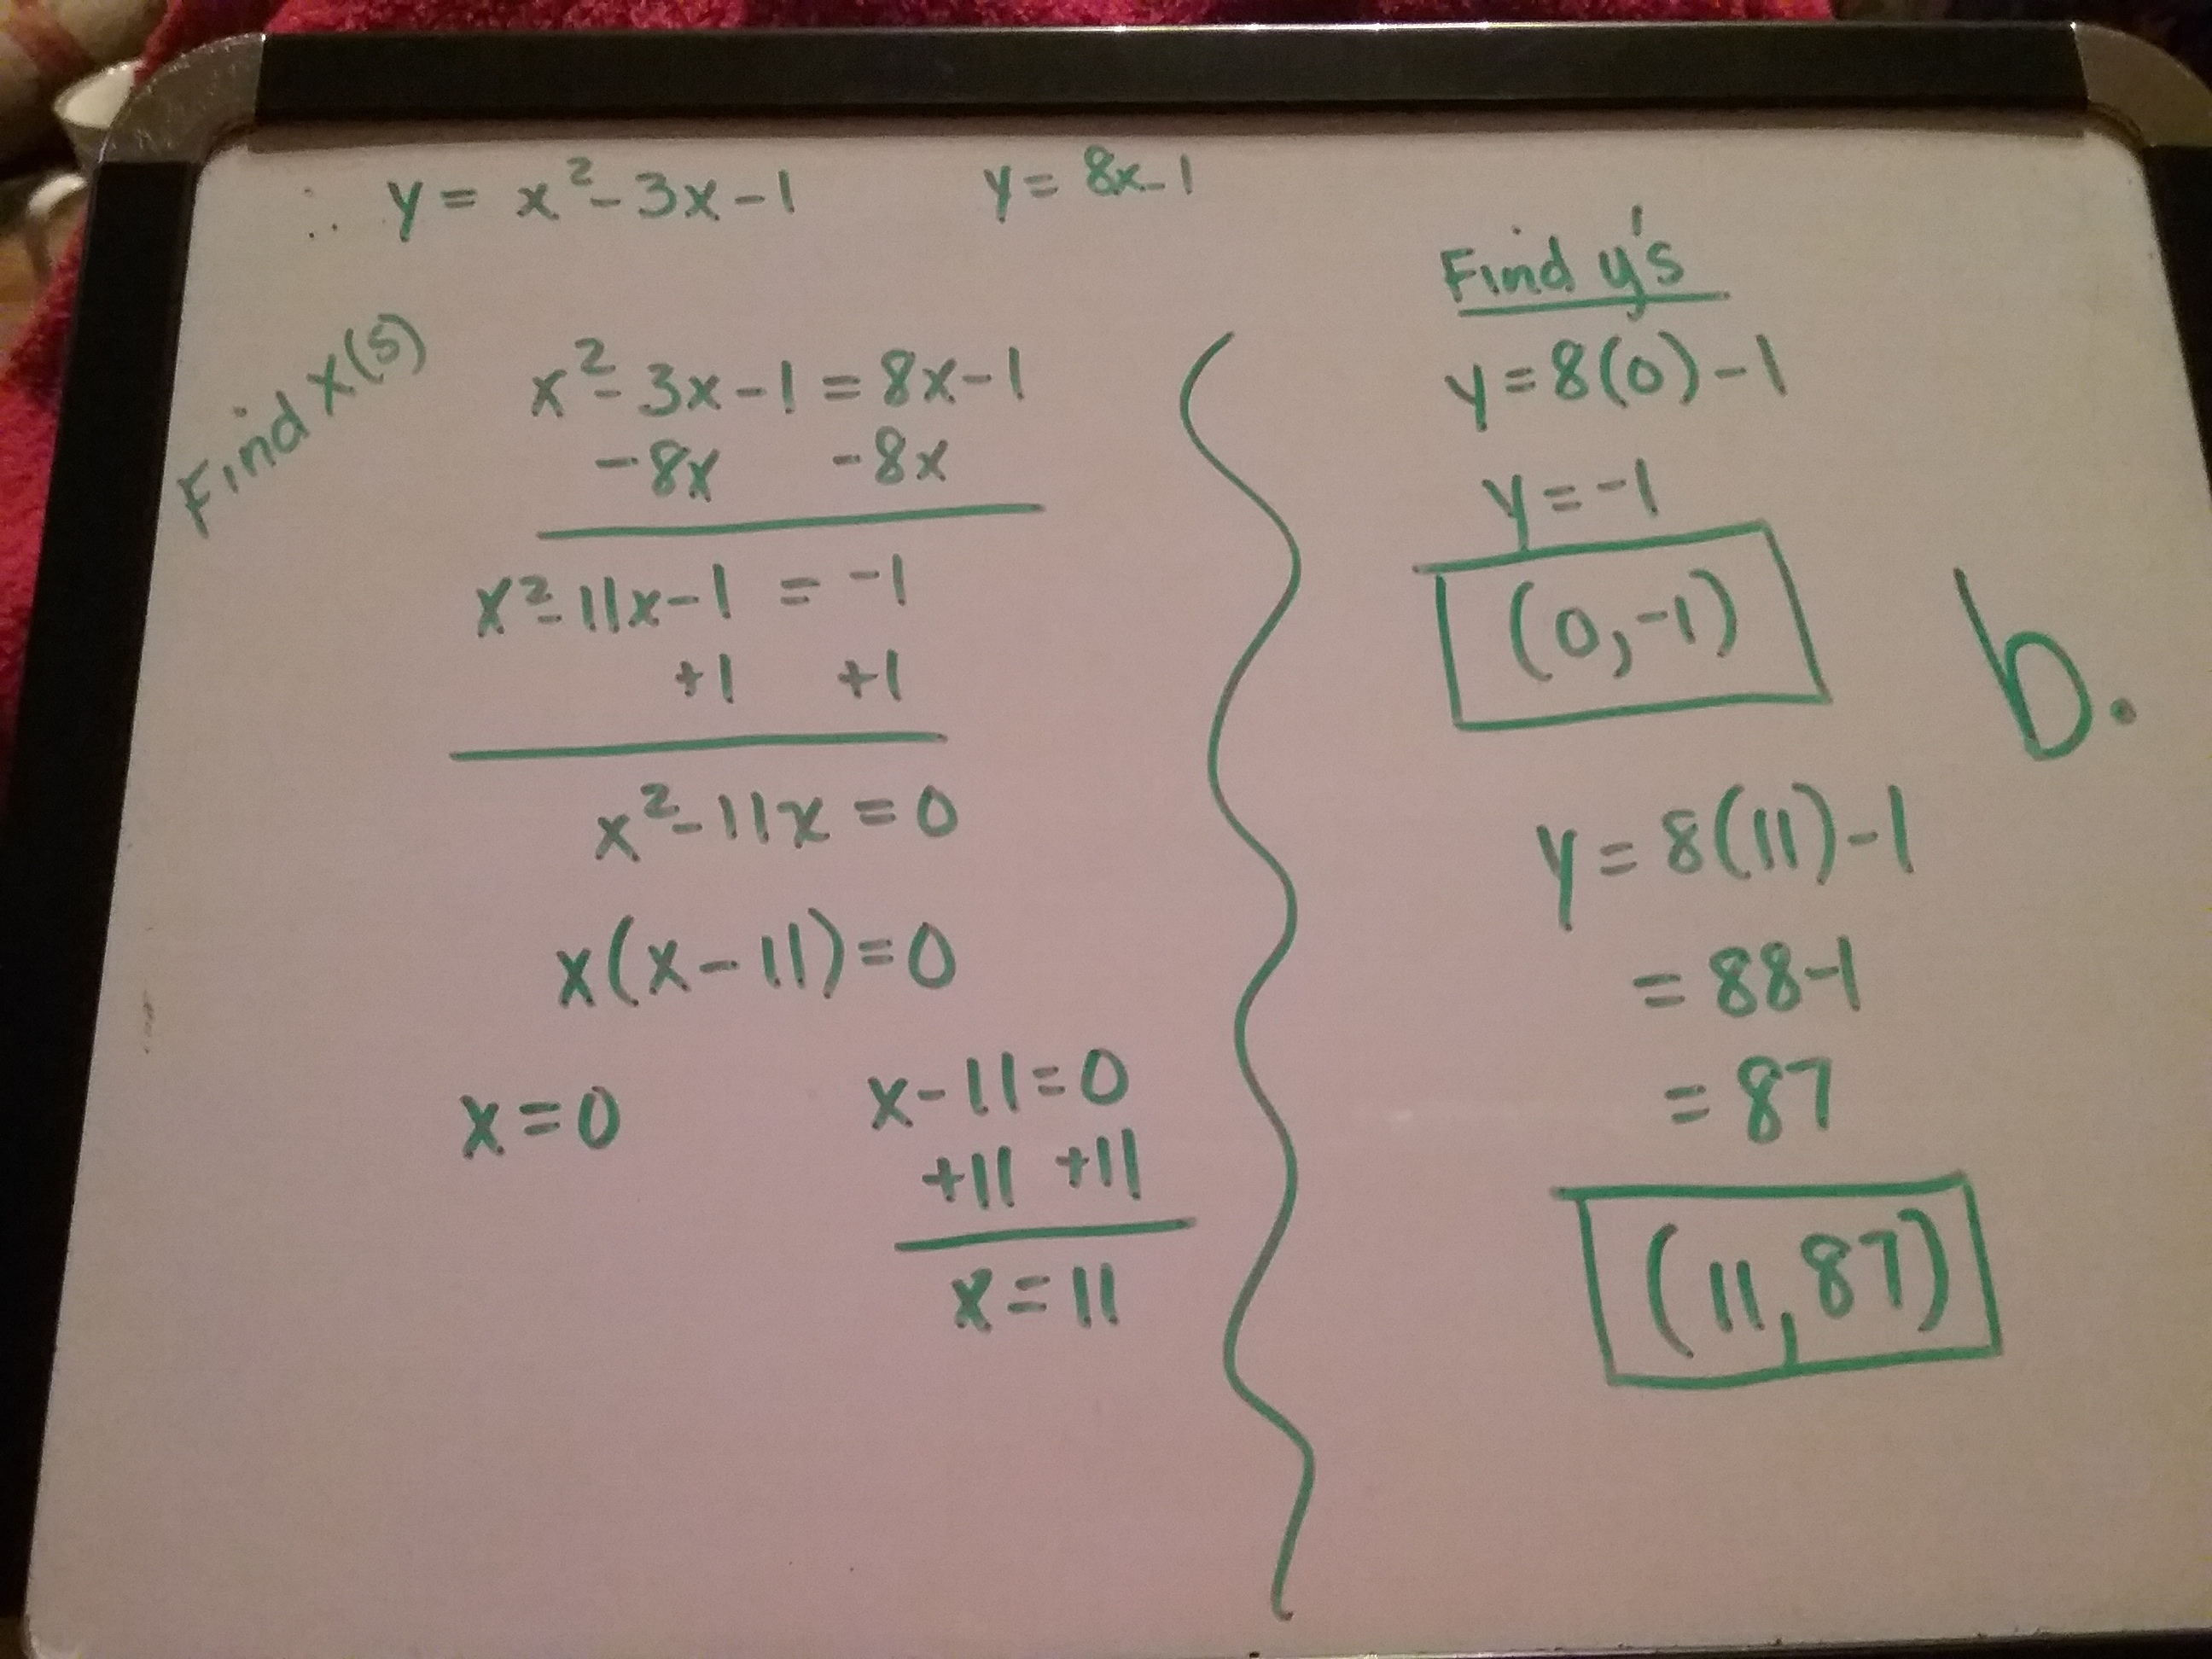 y = x² - 3x - 1    y = 8x - 1
Find x(s)
x² - 3x - 1 = 8x - 1
-8x    -8x
x² - 11x - 1 = -1
+1    +1
x² - 11x = 0
x(x - 11) = 0
x = 0    x - 11 = 0
+11 +11
x = 11
Find y's
y = 8(0) - 1
y = -1
(0, -1)
b.
y = 8(11) - 1
= 88 - 1
= 87
(11, 87)